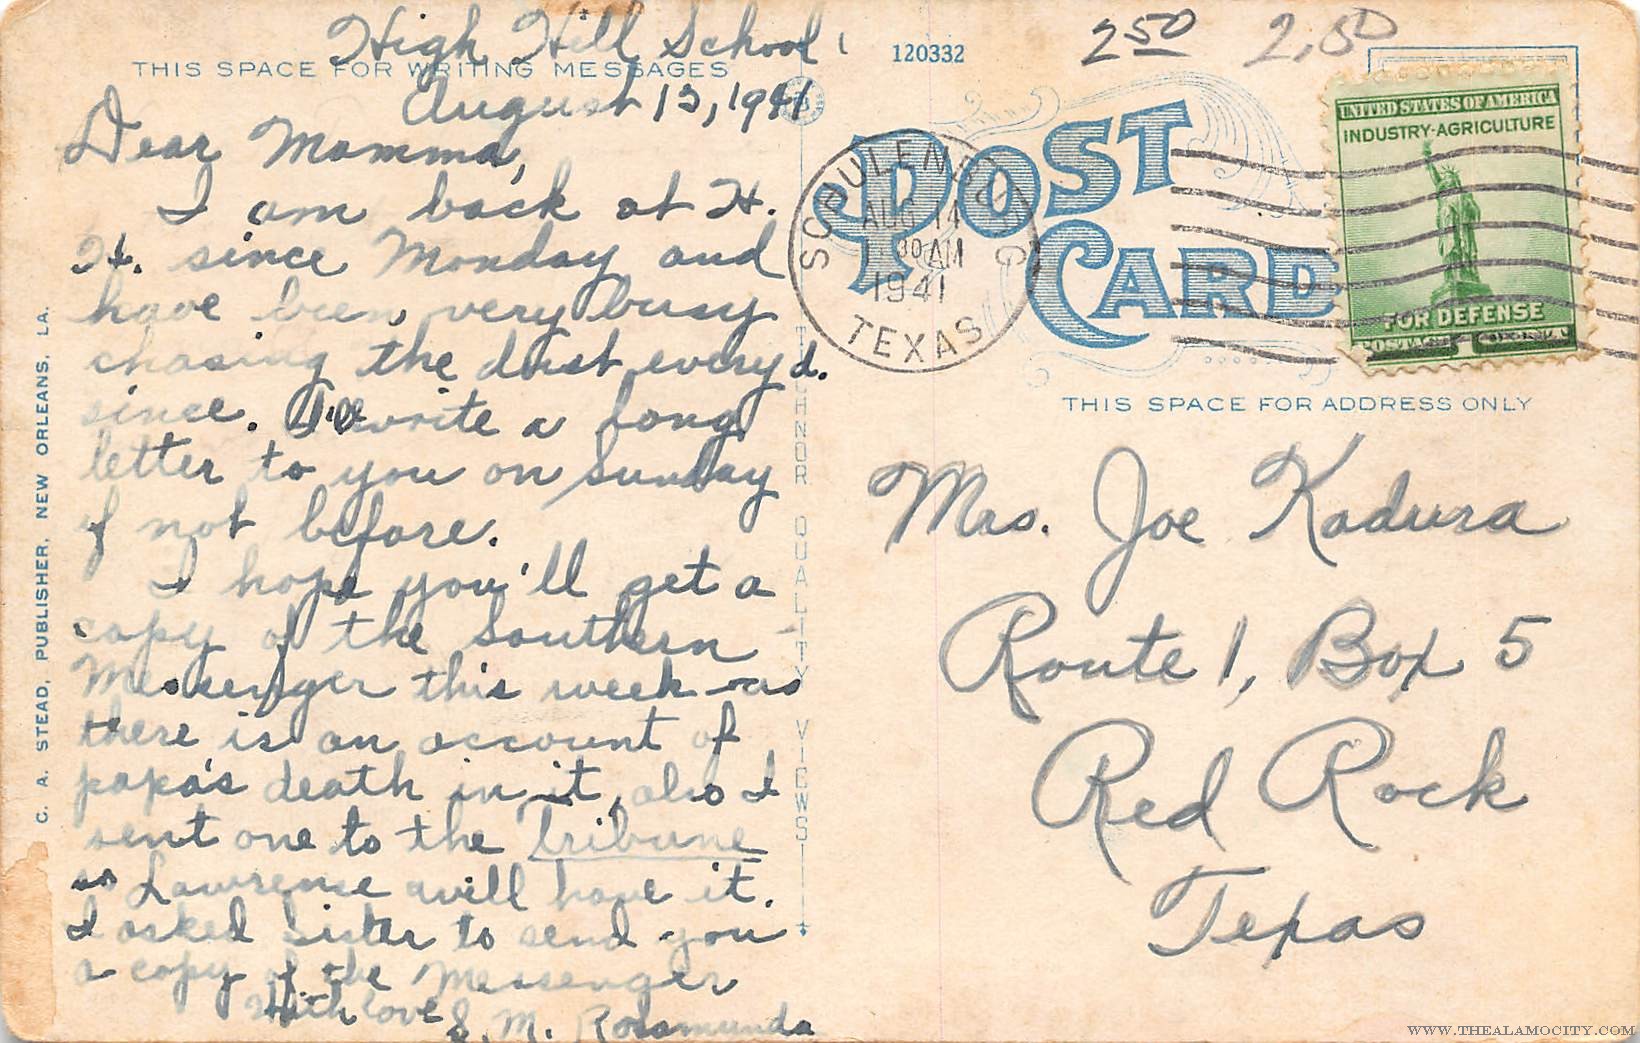 High Hill School
THIS SPACE FOR WRITING MESSAGES
August 13, 1941
Dear Mamma,
I am back at H.
H. since Monday and
have been very busy
chasing the dust every d.
since. I'll write a long
letter to you on Sunday
if not before.
I hope you'll get a
copy of the Southern
Messenger this week as
there is an account of
papa's death in it, also I
sent one to the Tribune
so Lawrence will have it.
I asked Sister to send you
a copy of the Messenger
With love
S. M. Rosamunda
C. A. STEAD, PUBLISHER, NEW ORLEANS, LA.
TEICHNOR QUALITY VIEWS
120332
2 50 2.50
POST
CARD
SCHULENBURG
AUG 14
30 AM
1941
TEXAS
UNITED STATES OF AMERICA
INDUSTRY-AGRICULTURE
FOR DEFENSE
THIS SPACE FOR ADDRESS ONLY
Mrs. Joe Kadura
Route 1, Box 5
Red Rock
Texas
WWW.THEALAMOCITY.COM